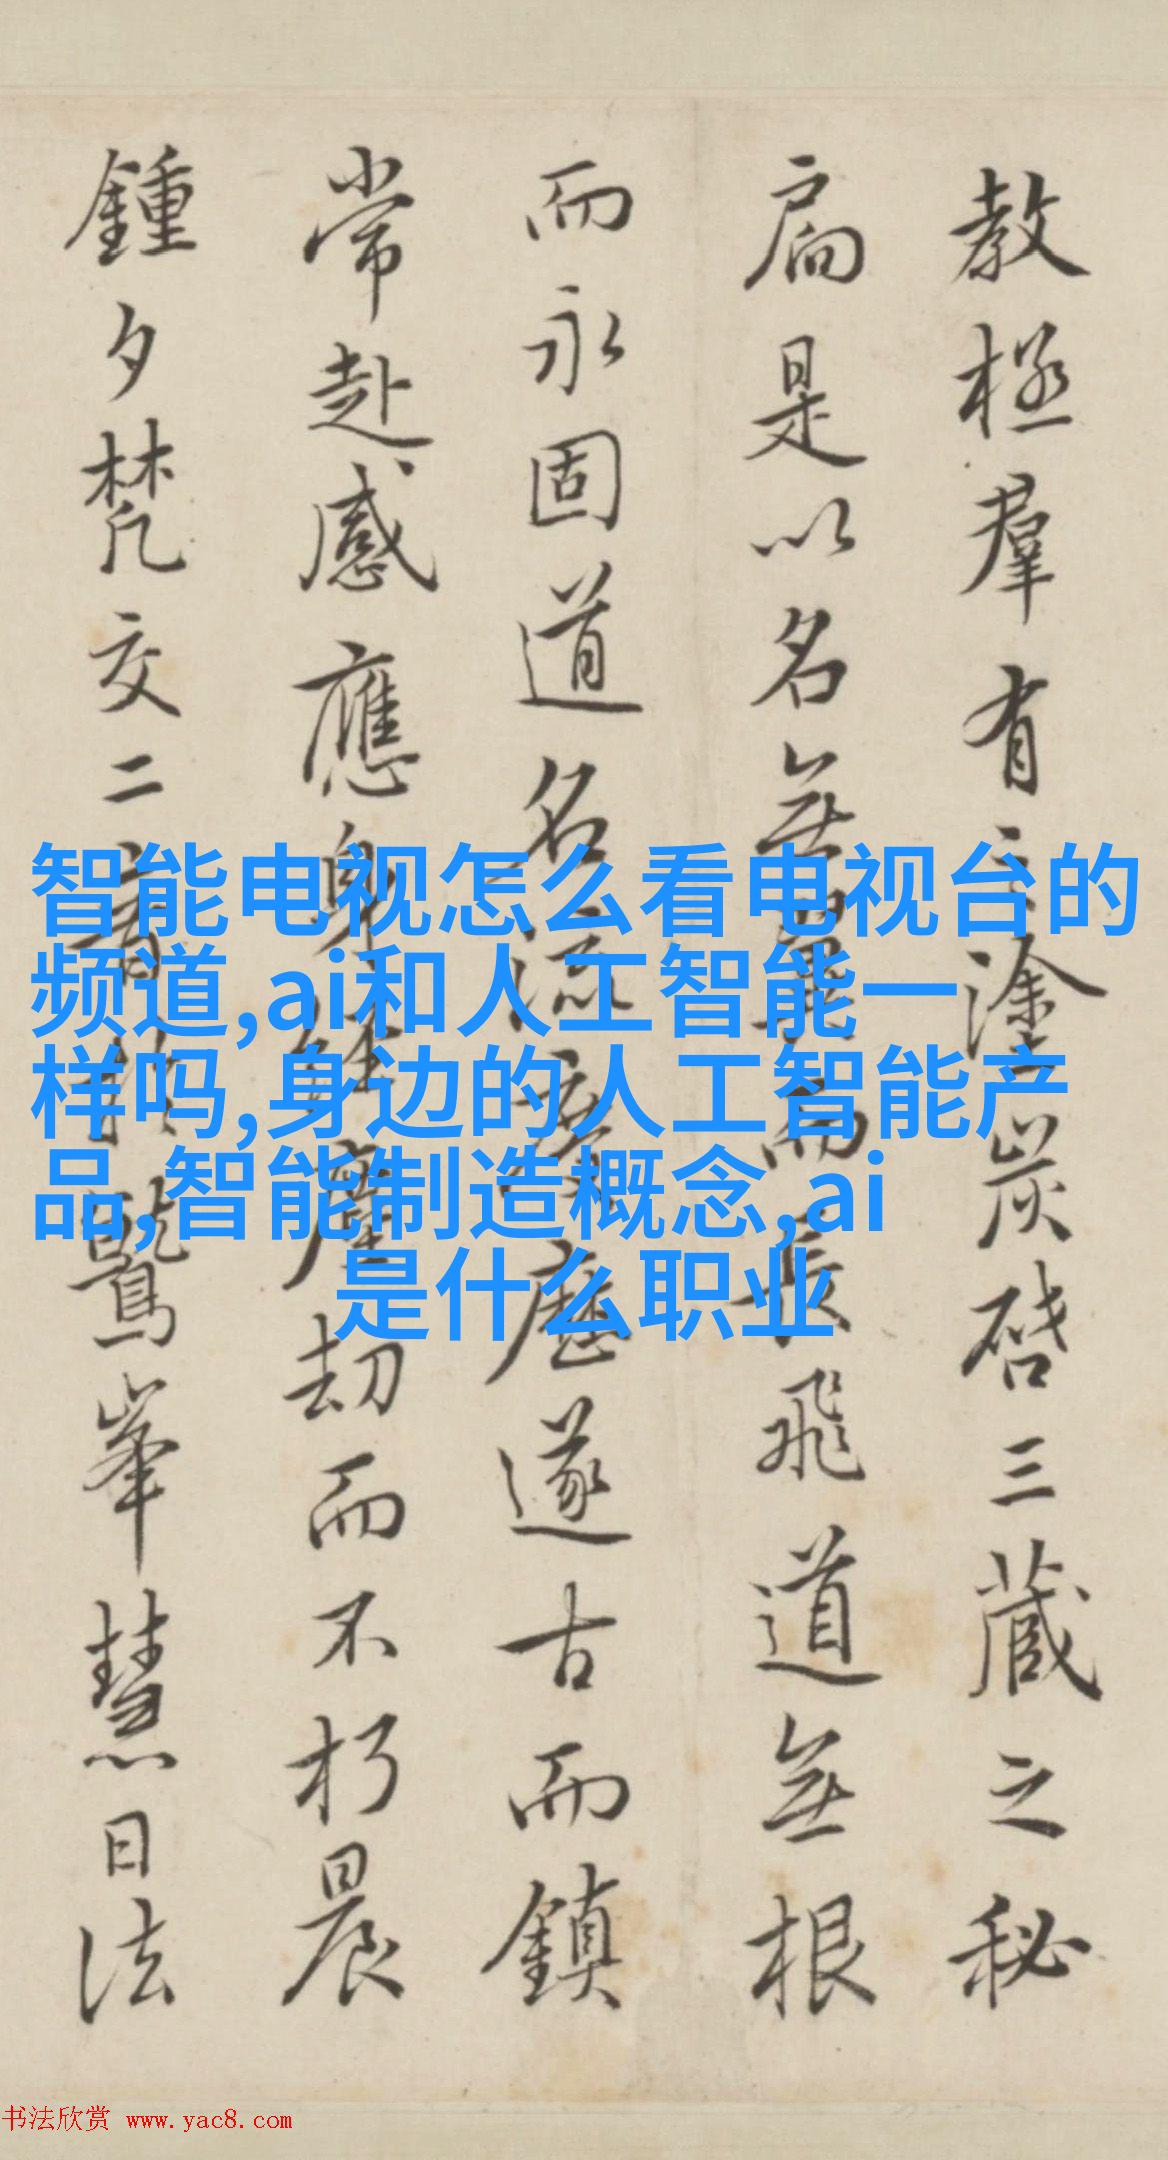 教拯羣有之塗炭啓三藏之秘
扃是以名無翼而長飛道無根
而永固道名流慶歷遂古而鎮
常赴感應身經塵劫而不朽晨
鍾夕梵交二音於鷲峯慧日法
智能电视怎么看电视台的
频道,ai和人工智能一
样吗,身边的人工智能产
品,智能制造概念,ai
是什么职业
书法欣赏 www.yac8.com